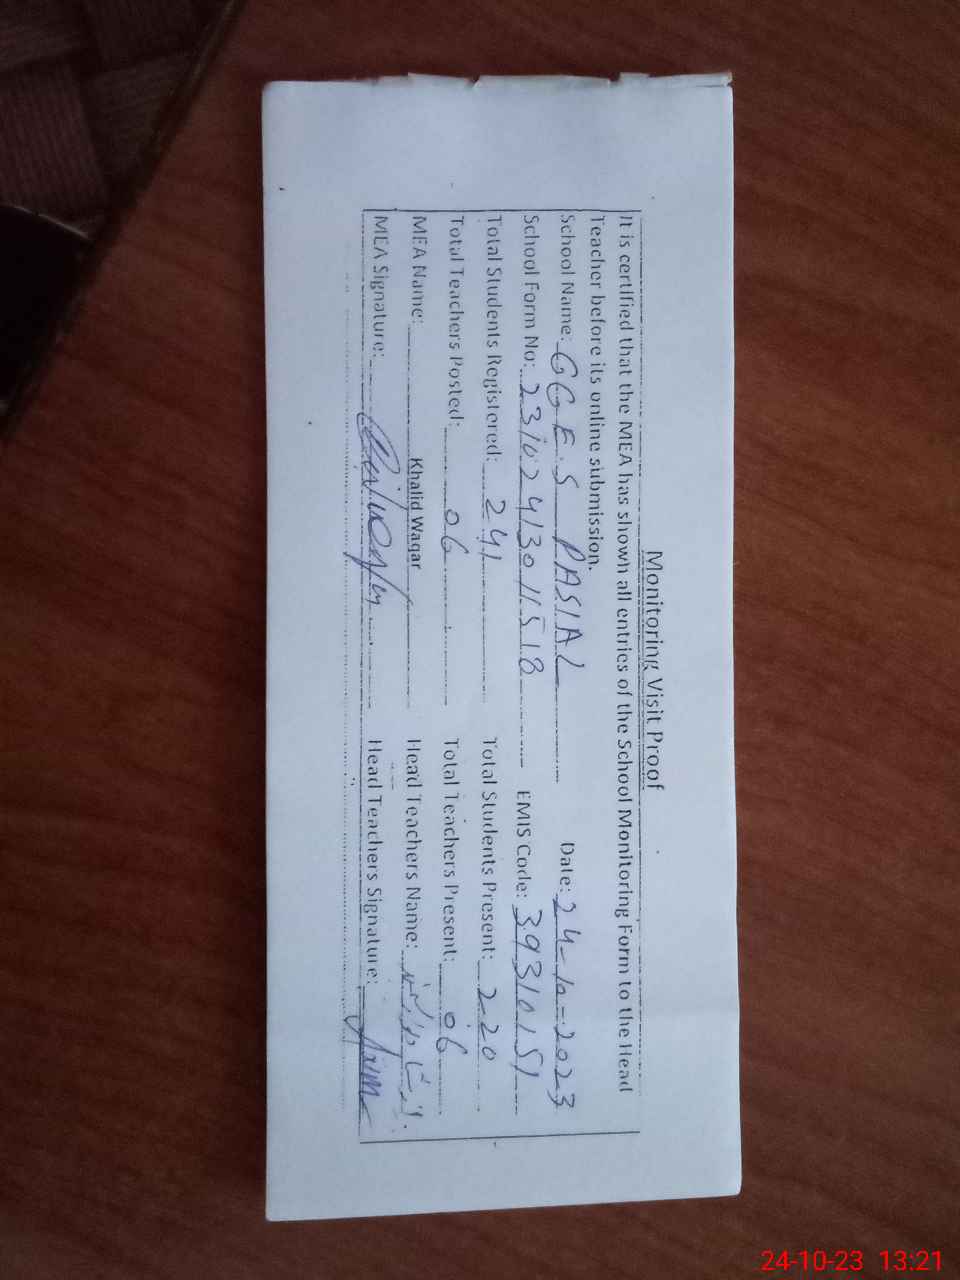 Monitoring Visit Proof
It is certified that the MEA has shown all entries of the School Monitoring Form to the Head
Teacher before its online submission.
School Name: GGE.S PASIAL Date: 24-10-2023
School Form No: 23102413011518 EMIS Code: 39310151
Total Students Registered: 241 Total Students Present: 220
Total Teachers Posted: 06 Total Teachers Present: 06
MEA Name: Khalid Waqar Head Teachers Name:
MEA Signature: Head Teachers Signature:
24-10-23 13:21